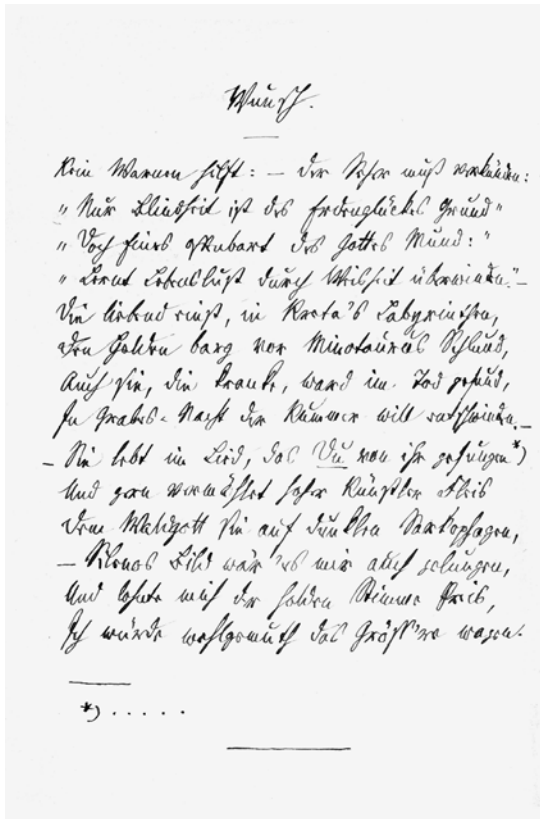 Wunsch.
Kein Warnen hilft: — der Seher muß verkünden:
„Nur Blindheit ist des Erdenglückes Grund"
„Doch Eines offenbart des Gottes Mund:"
„Lernt Lebenslust durch Weisheit überwinden." —
Die liebend einst, in Kreta's Labyrinthen,
Den Helden barg vor Minotaurus Schlund,
Auch sie, die Kranke, ward im Tod gesund,
In Grabes-Nacht der Kummer will entschwinden. —
— Sie lebt im Lied, das Du von ihr gesungen *)
Und gern vermählet hoher Künstler Fleis
Dem Waldgott sie auf dunklen Sarkophagen,
— Silenos Bild wär 'es mir auch gelungen,
Und lohnte mich der holden Stimme Preis,
Ich würde wohlgemuth das Größ're wagen.
*) . . . . .